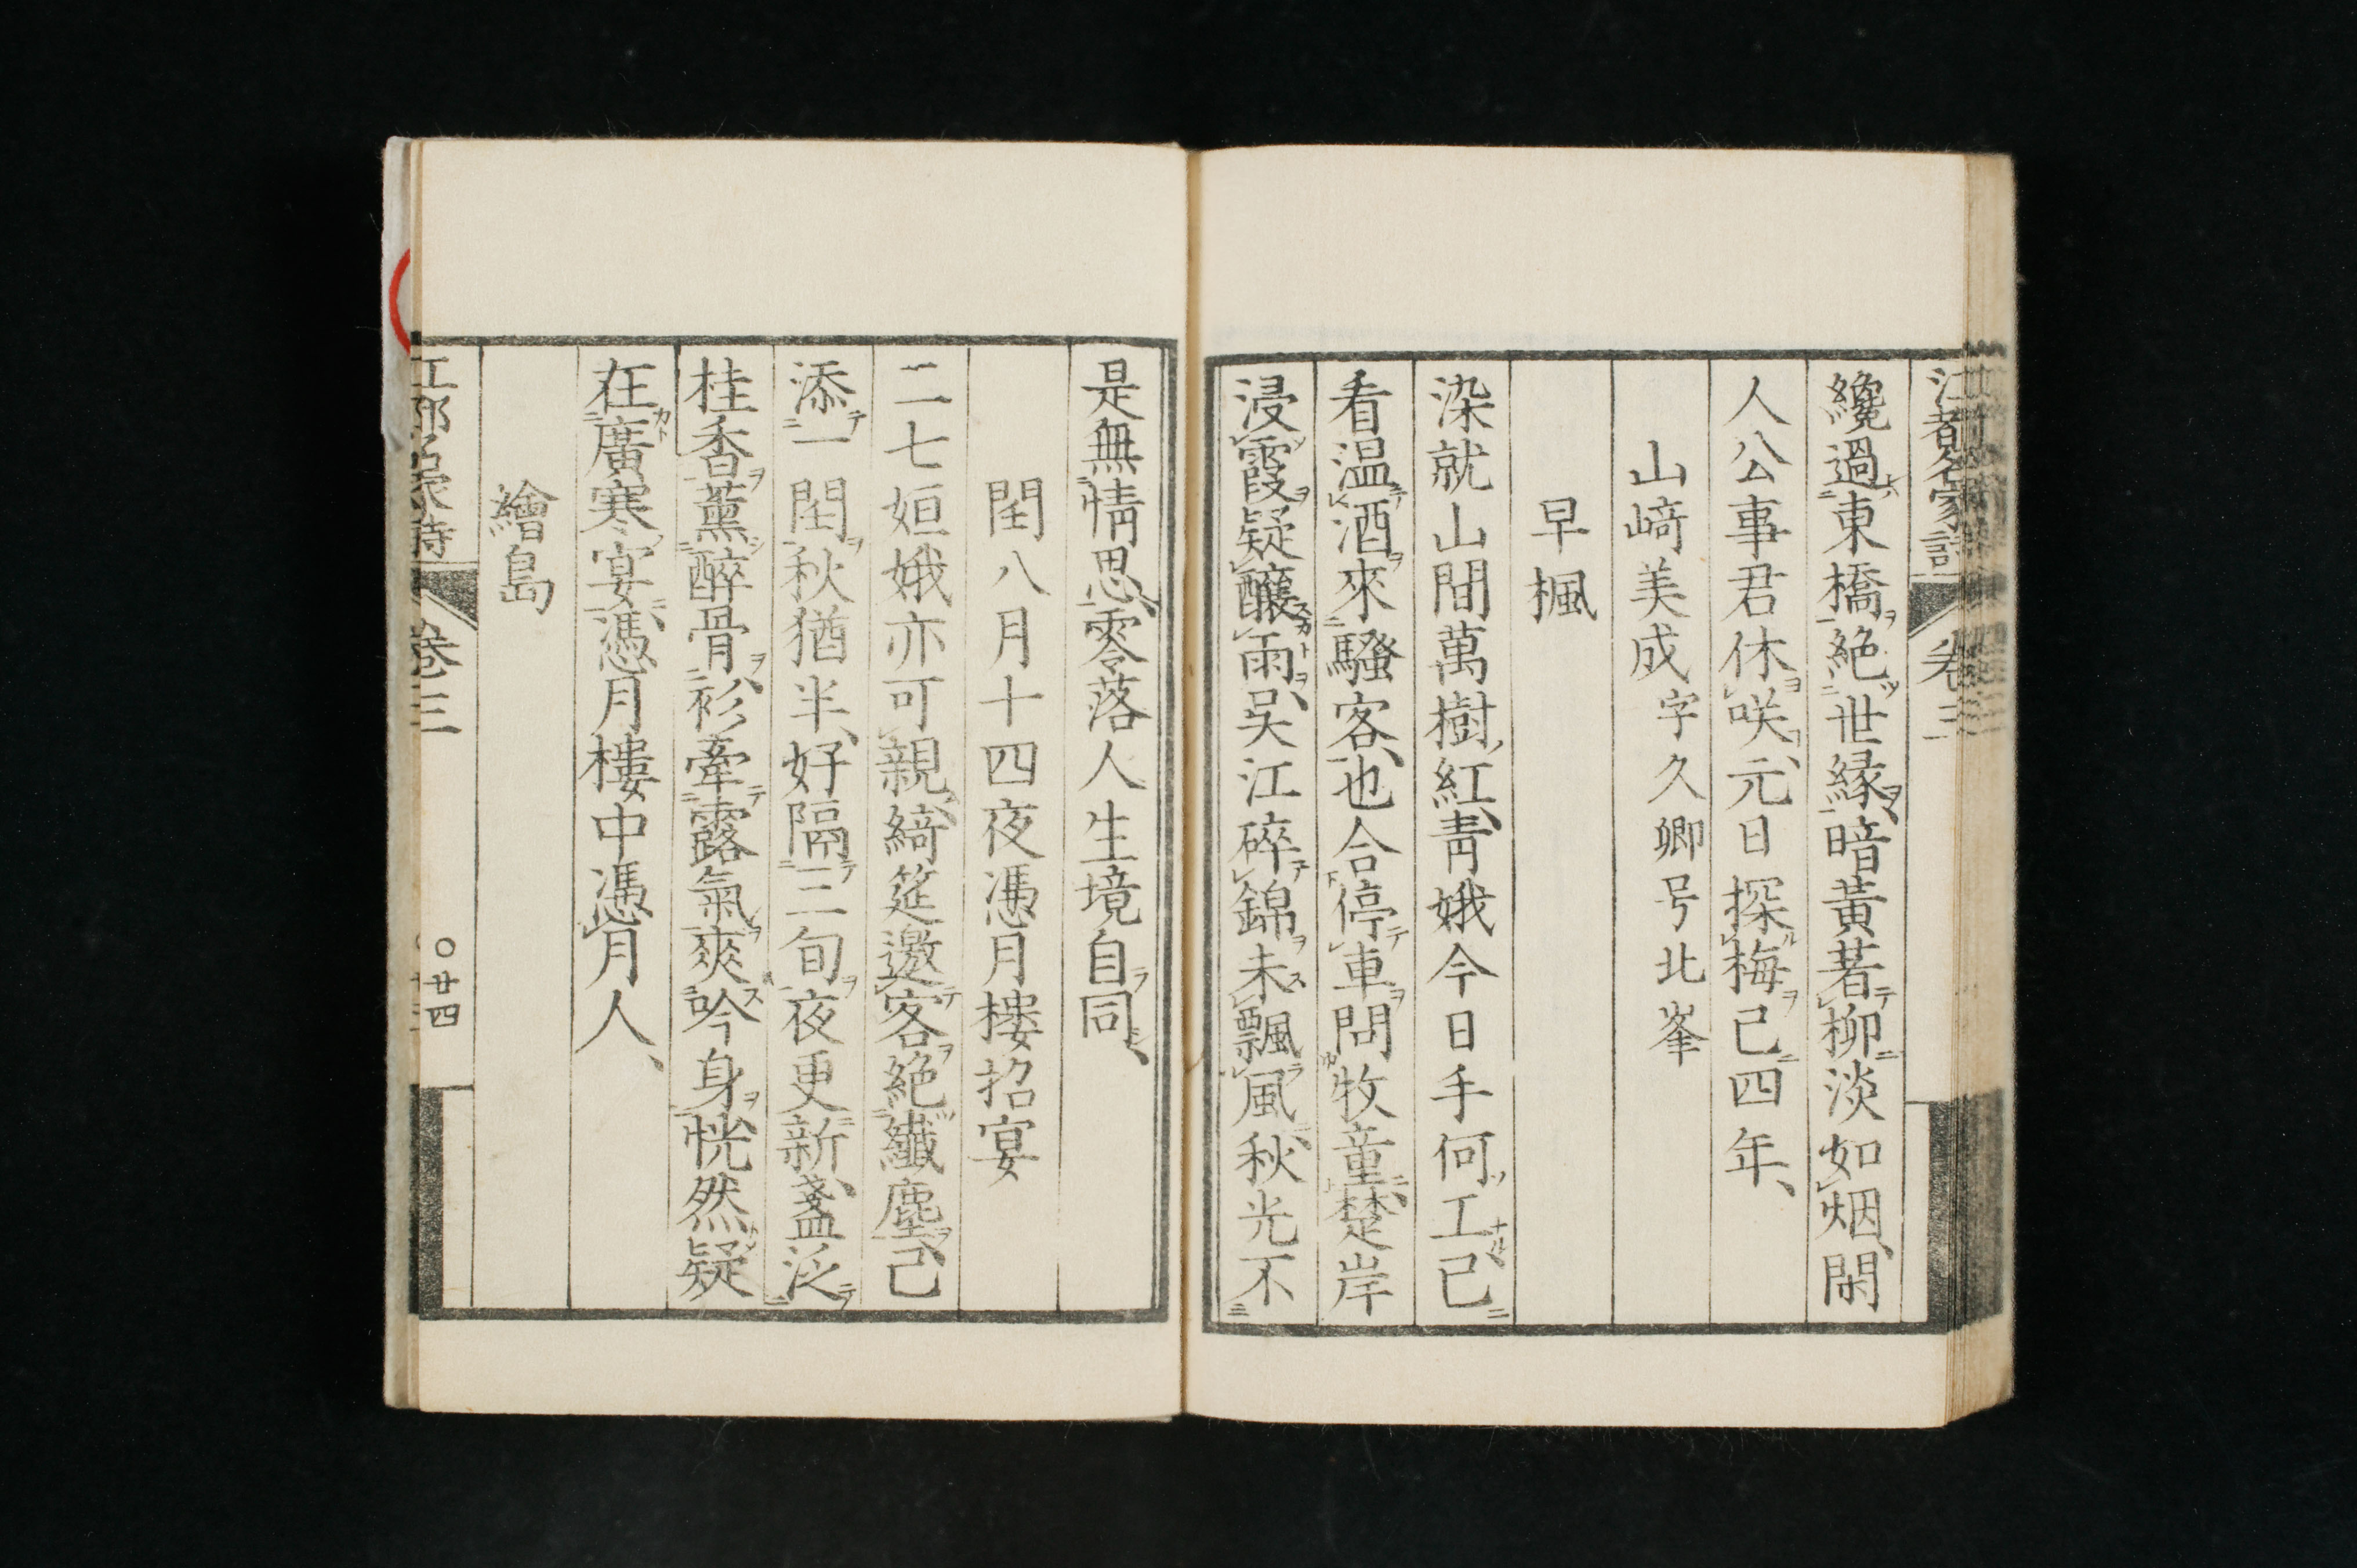 江都名家詩 卷三
纔過東橋絶世縁、暗黃著柳淡如烟、閑
人公事君休咲、元日探梅已四年、
山﨑美成字久卿号北峯
早楓
染就山間萬樹紅、青娥今日手何工已
看温酒來騷客、也合停車問牧童、楚岸
浸霞疑釀雨、吳江碎錦未飄風、秋光不
是無情思、零落人生境自同、
閏八月十四夜憑月樓招宴
二七姮娥亦可親、綺筵邀客絶纖塵、已
添一閏秋猶半、好隔三旬夜更新、盞泛
桂香薰醉骨、衫牽露氣爽吟身、恍然疑
在廣寒宴、憑月樓中憑月人、
繪島
江都名家詩 卷三 〇廿四